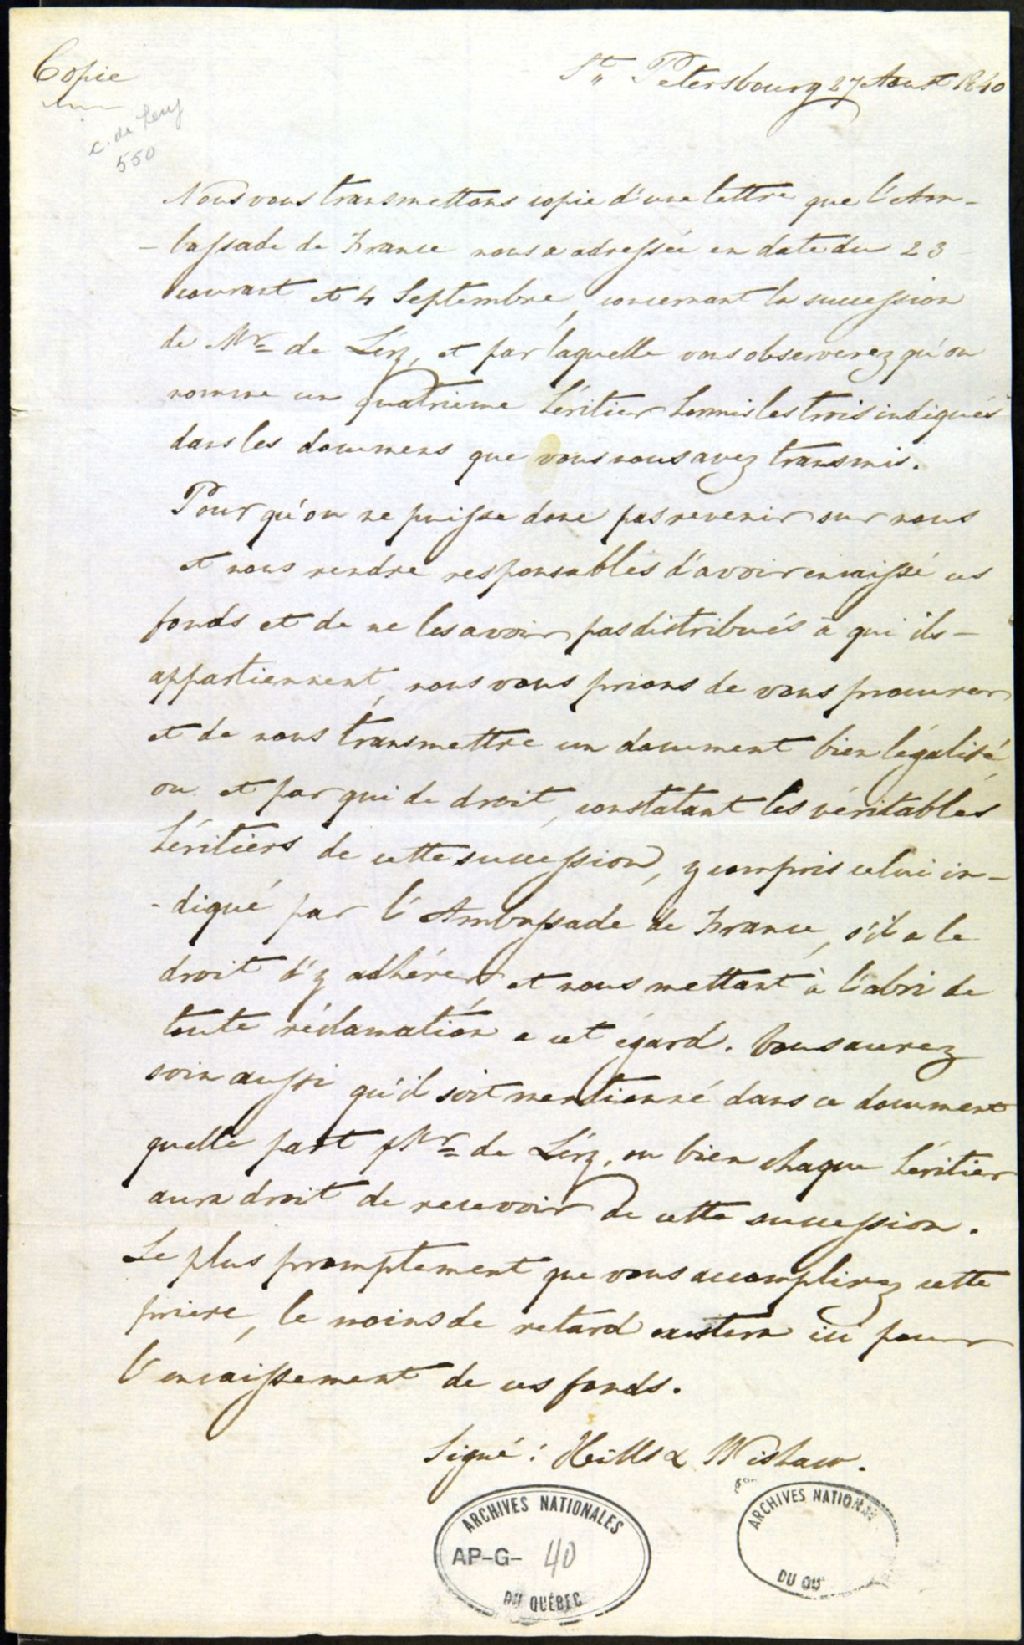 Copie
St Petersbourg 27 Aoust 1840
C. de Lery
550
Nous vous transmettons copie d'une lettre que l'Am-
-bassade de France nous a adressée en date du 23
courant et 4 Septembre, concernant la succession
de Mr de Lérz, et par laquelle vous observerez qu'on
nomme un quatrieme héritier hormis les trois indiqués
dans les documens que vous nous avez transmis.
Pour qu'on ne puisse donc pas revenir sur nous
et nous rendre responsables d'avoir encaissé ces
fonds et de ne les avoir pas distribués à qui ils-
appartiennent, nous vous prions de vous procurer
et de nous transmettre un document bien légalisé
ou et par qui de droit, constatant les véritables
héritiers de cette succession, y compris celui in-
-diqué par l'Ambassade de France, s'il a le
droit d'y adhérer et nous mettant à l'abri de
toute réclamation a cet égard. Vous aurez
soin aussi qu'il soit mentionné dans ce document
quelle part Mr de Lérz, ou bien chaque héritier
aura droit de recevoir de cette succession.
Le plus promptement que vous accomplirez cette
priere, le moins de retard existera ici pour
l'encaissement de ces fonds.
Signé: Hills & Wishaw.
ARCHIVES NATIONALES
AP-G- 40
DU QUÉBEC
ARCHIVES NATIONA
DU QU